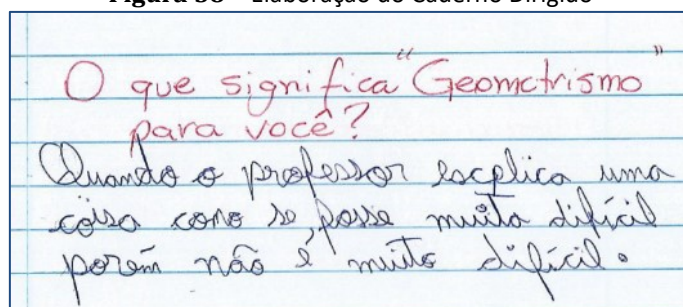 Figura 38 – Elaboração do Caderno Dirigido
O que significa "Geometrismo"
para você?
Quando o professor escplica uma
coisa como se fosse muito difícil
porém não é muito difícil.